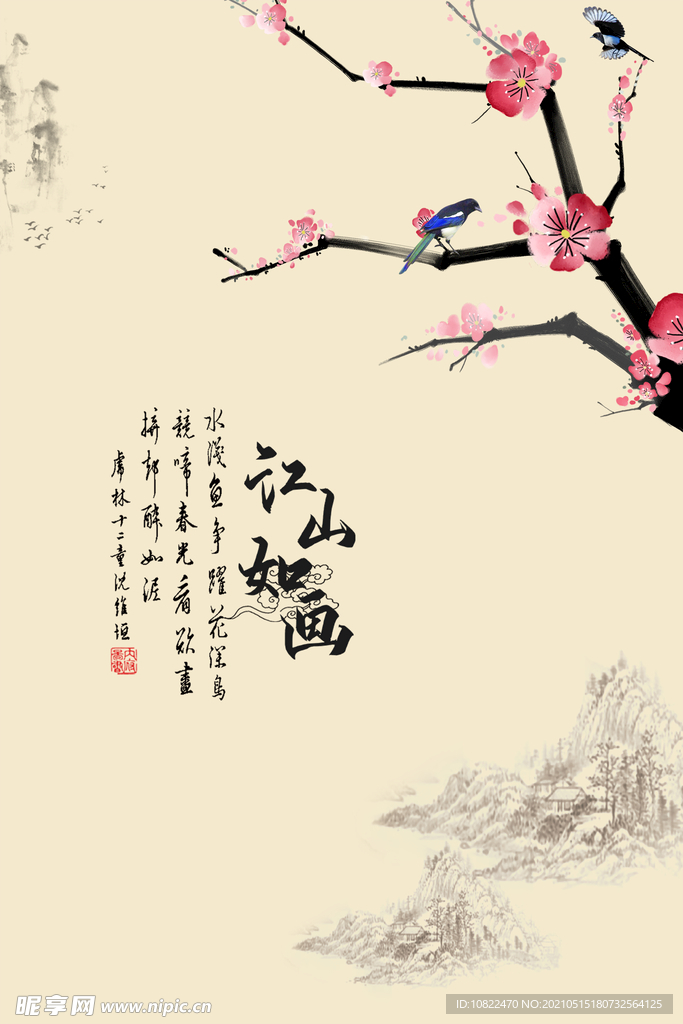 江山如画
水淺魚争躍花深鳥
競啼春光看欲盡
拚却醉如泥
虎林十二童沈維垣
昵享网 www.nipic.cn
ID:10822470 NO:20210515180732564125